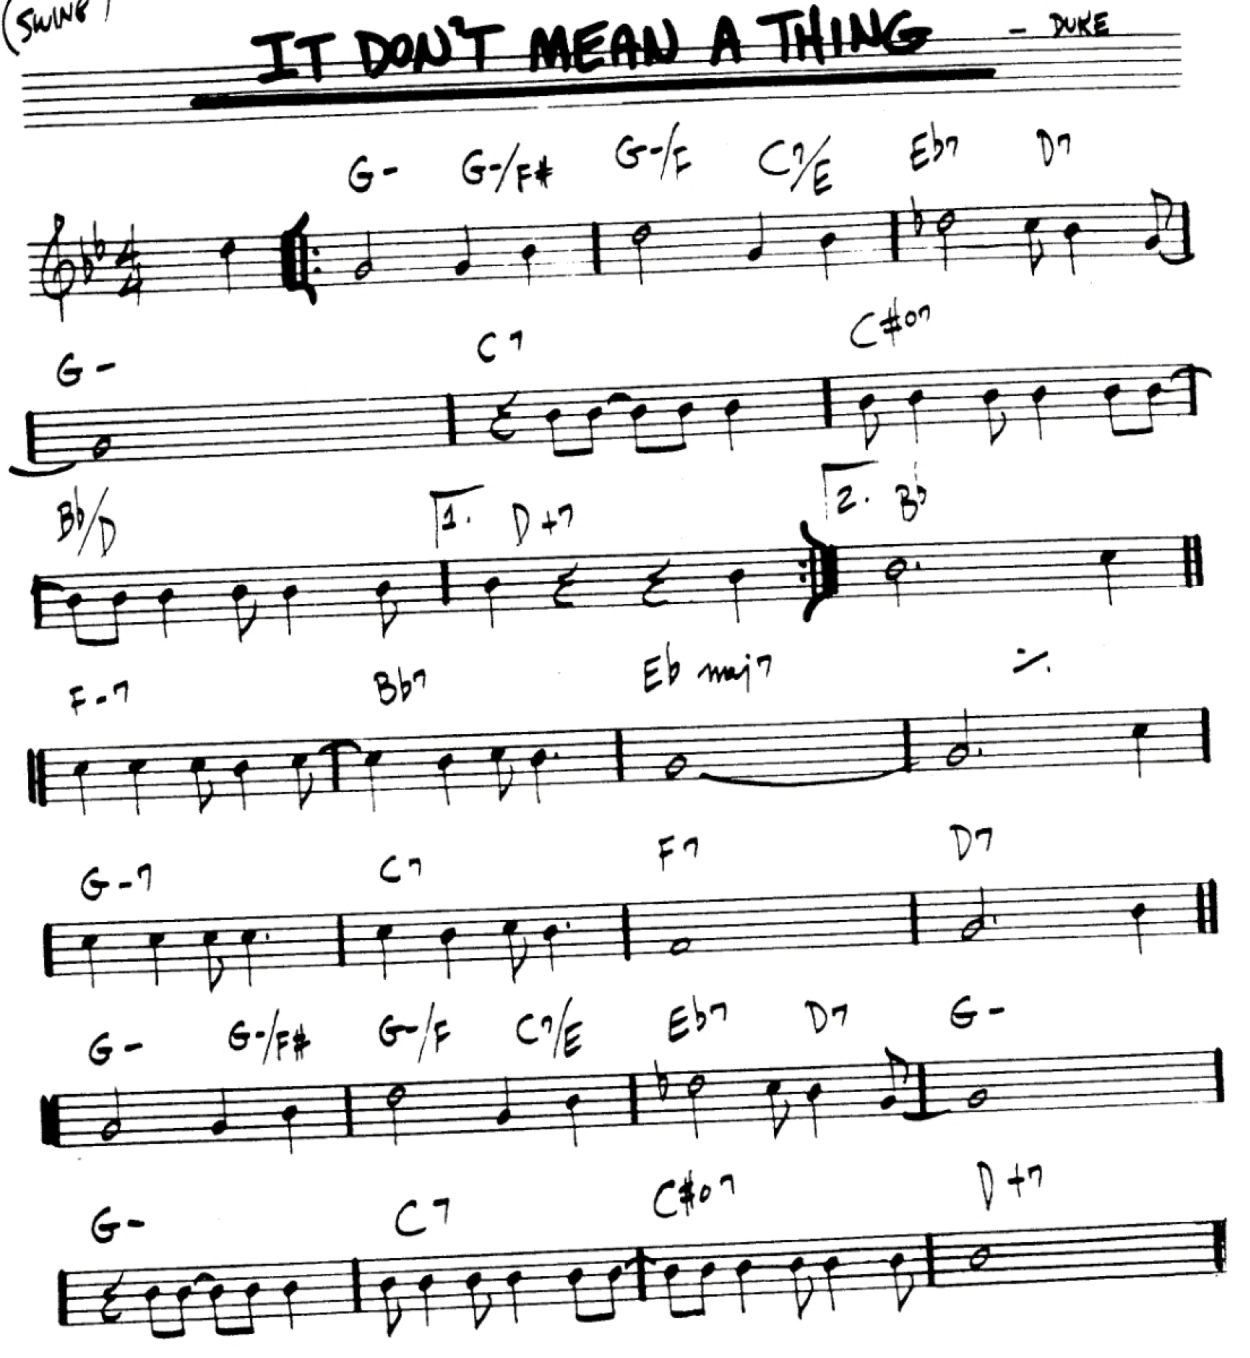 (SWING)
IT DON'T MEAN A THING - DUKE
G- G-/F# G-/F C7/E Eb7 D7
4/4
G- C7 C#o7
Bb/D 1. D+7 2. Bb
F-7 Bb7 Eb maj7 ٪
G-7 C7 F7 D7
G- G-/F# G-/F C7/E Eb7 D7 G-
G- C7 C#o7 D+7